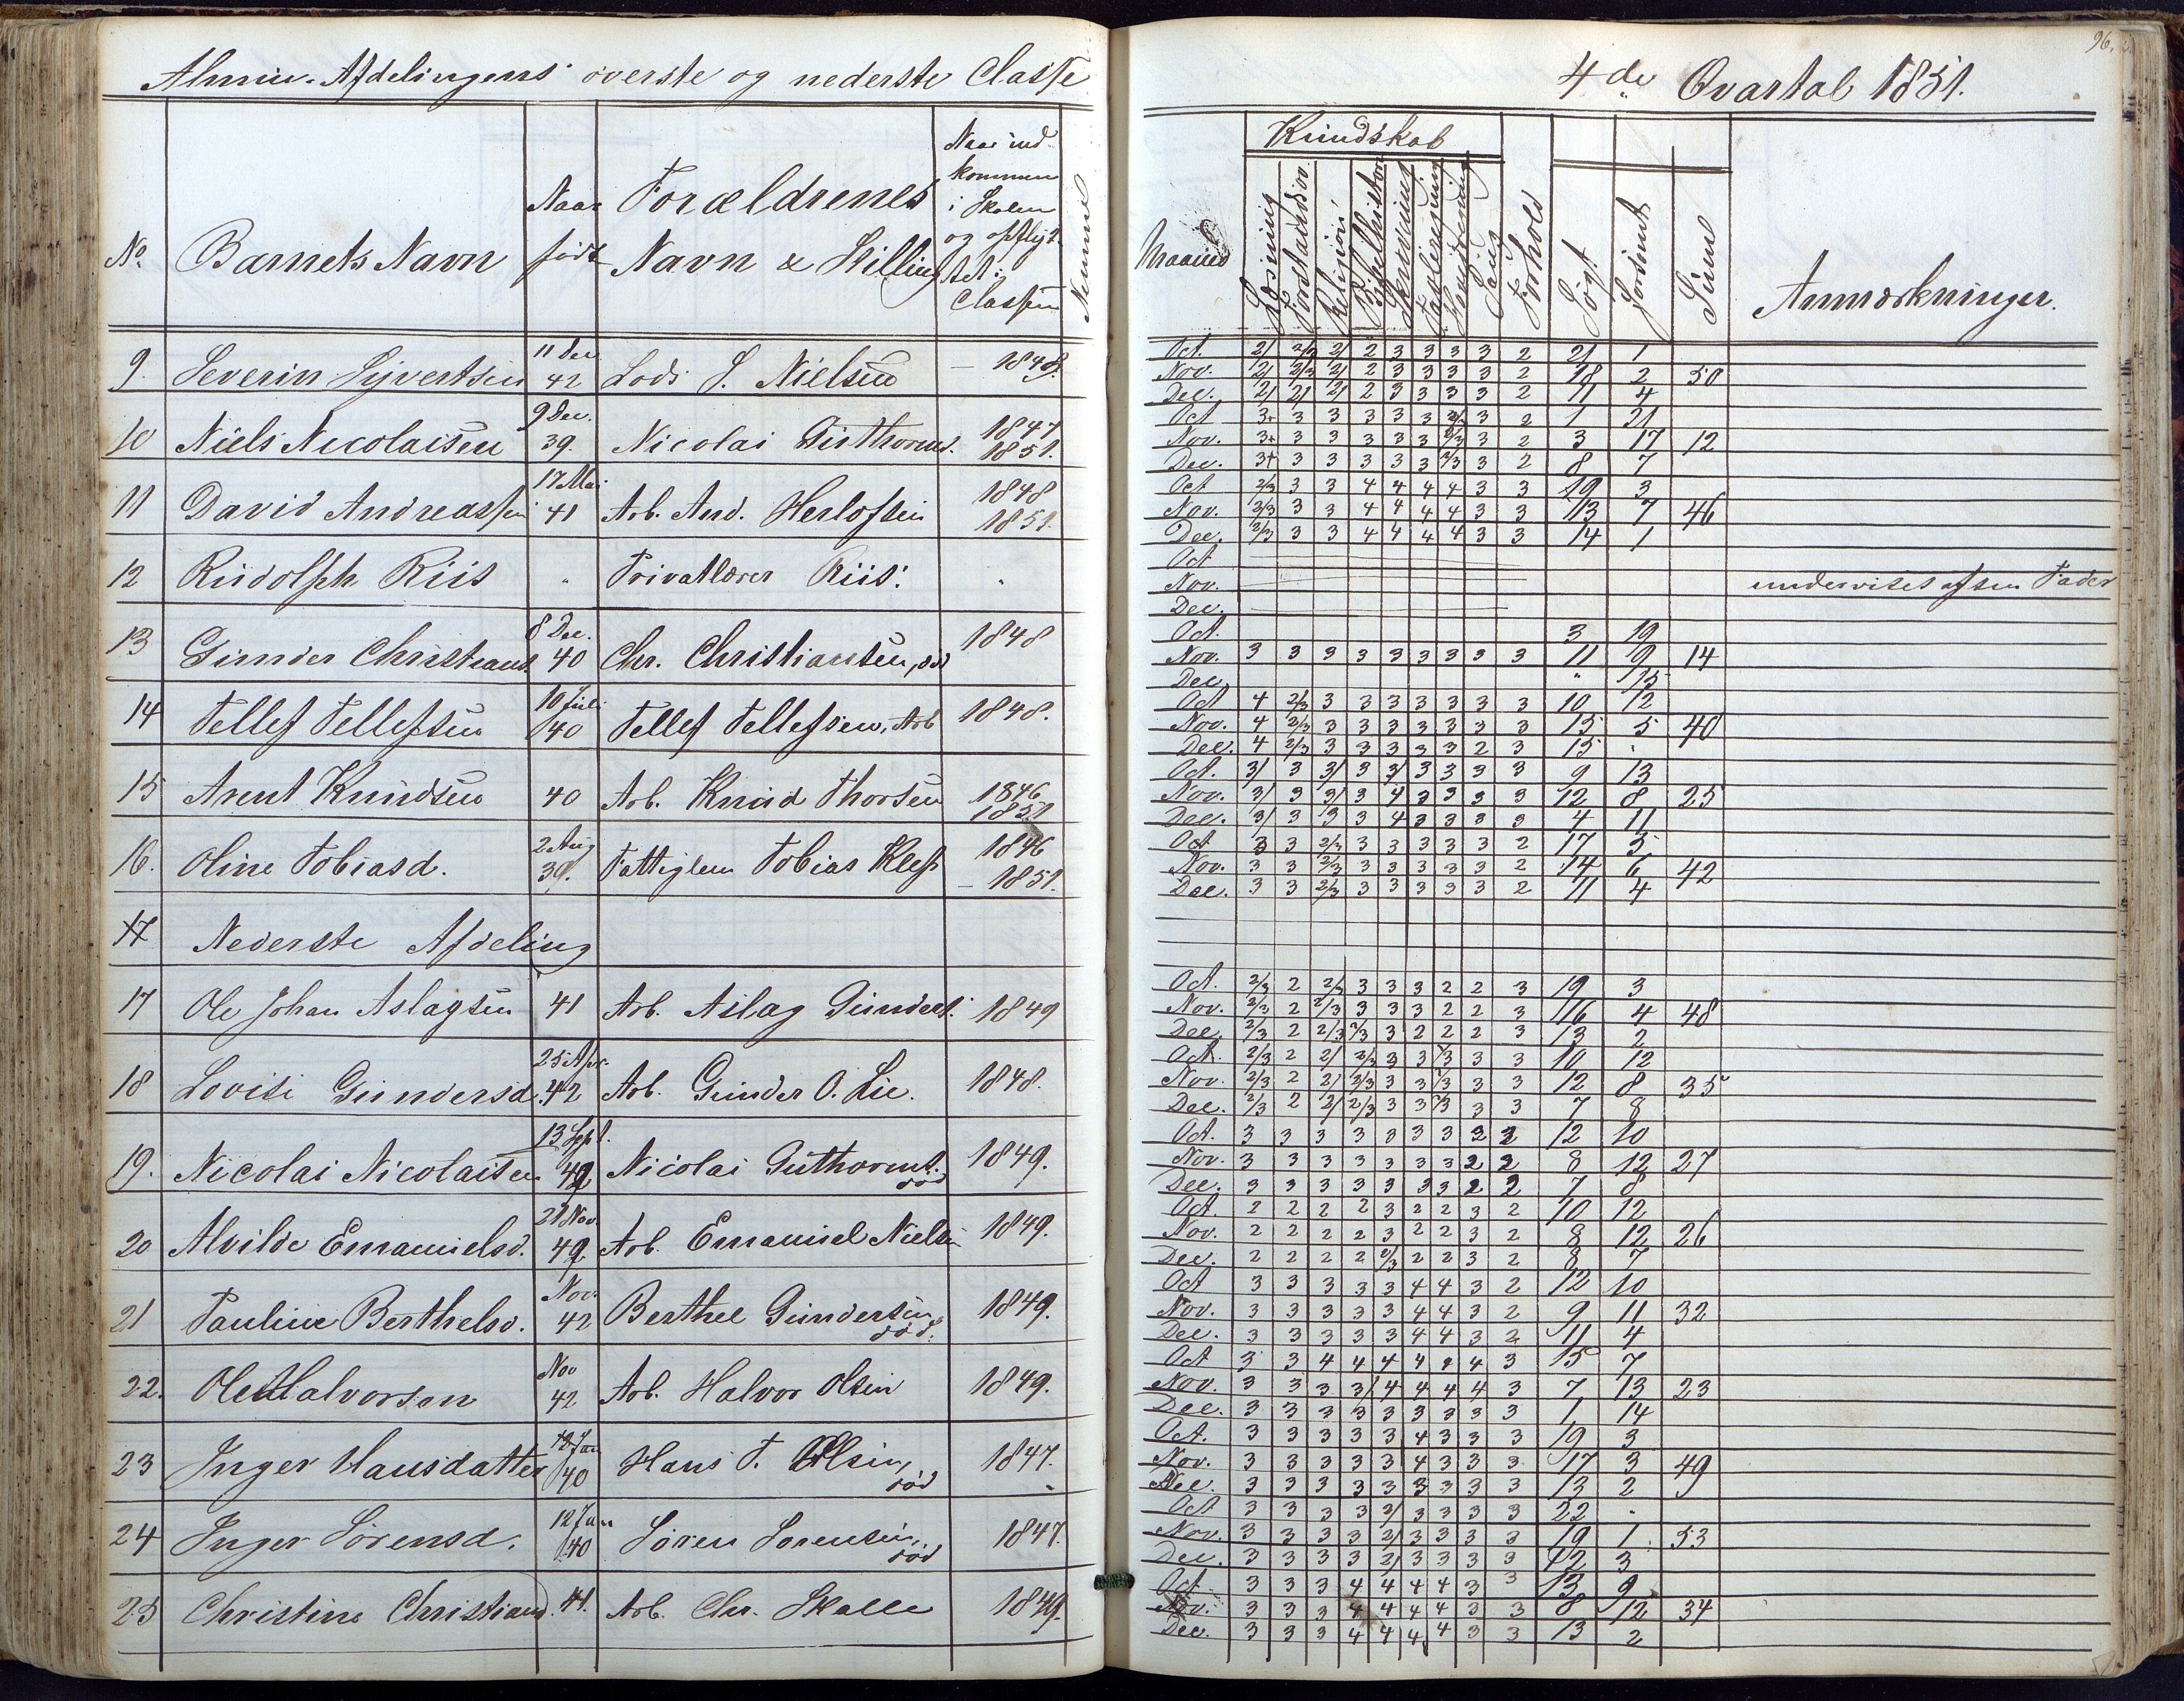 Almiu. Afdelingens øverste og nederste Classe
No. Barnets Navn Naar født Forældrenes Navn & Stilling Naar indkommen i Skolen og opflyttet i Classen
9. Severin Syvertsen 11 Dec. 42 Lods S. Nielsen — 1848.
10 Niels Nicolaisen 9 Dec. 39. Nicolai Guthorms. 1847 1851.
11 David Andreassen 17 Mai 41 Arb. And. Herlofsen 1848 1851.
12 Rudolph Riis " Privatlærer Riis.
13 Gunder Christians. 8 Dec. 40 Chr. Christiansen, død 1848
14 Tellef Tellefsen 10 Juli 40 Tellef Tellefsen, Arb 1848.
15 Arent Knudsen 40 Arb. Knud Thorsen 1846 1851
16. Oline Tobiasd. 2 Aug 39. Fattiglem Tobias Klep 1846 — 1851.
17 Nederste Afdeling
17 Ole Johan Aslagsen 41 Arb. Aslag Gunders. 1849
18 Lovise Gundersd. 25 Apr. 42 Arb. Gunder O. Lie. 1848.
19. Nicolai Nicolaisen 13 Sept. 42 Nicolai Guthorms. død 1849.
20 Alvilde Emanuelsd. 21 Nov. 42 Arb. Emanuel Nielsen 1849.
21 Pauline Berthelsd. Nov. 42 Berthel Gundersen, død. 1849.
22. Ole Halvorsen Nov 42 Arb. Halvor Olsen 1849.
23 Inger Hansdatter 12 Jan 40 Hans T. Olsen, død 1847.
24 Inger Sørensd. 12 Jan 40 Søren Sørensen, død 1847
25 Christine Christiansd. 41. Arb. Chr. Skalle 1849.
96.
4de Qvartal 1851.
Kundskab
Maaned Læsning Forstandsøv. Religion Bibelhistorie Skrivning Tavleregning Hovedregning Sang Forhold Søgt Forsømt Sum Anmærkninger.
Oct. 2/ 2/3 2/ 2 3 3 3 3 2 21 1
Nov. 2/ 2/3 2/ 2 3 3 3 3 2 18 2 50
Dec. 2/ 2/ 2/ 2 3 3 3 3 2 11 4
Oct 3+ 3 3 3 3 3 2/3 3 2 1 21
Nov. 3+ 3 3 3 3 3 2/3 3 2 3 17 12
Dec. 3+ 3 3 3 3 3 2/3 3 2 8 7
Oct 2/3 3 3 4 4 4 4 3 3 19 3
Nov. 2/3 3 3 4 4 4 4 3 3 13 7 46
Dec. 2/3 3 3 4 4 4 4 3 3 14 1
Oct
Nov. undervises af sin Fader
Dec.
Oct. 3 19
Nov. 3 3 3 3 3 3 3 3 3 11 9 14
Dec. " 15
Oct 4 2/3 3 3 3 3 3 3 3 10 12
Nov. 4 2/3 3 3 3 3 3 3 3 15 5 40
Dec. 4 2/3 3 3 3 3 3 2 3 15 .
Oct. 3/ 3 3/ 3 3/ 3 3 3 3 9 13
Nov. 3/ 3 3/ 3 4 3 3 3 3 12 8 25
Dec. 3/ 3 3 3 4 3 3 3 3 4 11
Oct 3 3 2/3 3 3 3 3 3 2 17 5
Nov. 3 3 2/3 3 3 3 3 3 2 14 6 42
Dec. 3 3 2/3 3 3 3 3 3 2 11 4
Oct. 2/3 2 2/3 3 3 3 2 2 3 19 3
Nov. 2/3 2 2/3 3 3 3 2 2 3 16 4 48
Dec. 2/3 2 2/3 2/3 3 2 2 2 3 13 2
Oct. 2/3 2 2/ 2/3 3 3 2/3 3 3 10 12
Nov. 2/3 2 2/ 2/3 3 3 2/3 3 3 12 8 35
Dec. 2/3 2 2/ 2/3 3 3 2/3 3 3 7 8
Oct. 3 3 3 3 3 3 3 2 2 12 10
Nov. 3 3 3 3 3 3 3 2 2 8 12 27
Dec. 3 3 3 3 3 3 3 2 2 7 8
Oct. 2 2 2 2 3 2 2 3 2 10 12
Nov. 2 2 2 2 3 2 2 3 2 8 12 26
Dec. 2 2 2 2 2/3 2 2 3 2 8 7
Oct 3 3 3 3 3 4 4 3 2 12 10
Nov. 3 3 3 3 3 4 4 3 2 9 11 32
Dec. 3 3 3 3 3 4 4 3 2 11 4
Oct 3 3 4 4 4 4 4 4 3 15 7
Nov. 3 3 3 3/ 4 4 4 4 3 7 13 23
Dec. 3 3 3 3 3 3 3 3 3 1 14
Oct. 3 3 3 3 3 4 3 3 3 19 3
Nov. 3 3 3 3 3 4 3 3 3 17 3 49
Dec. 3 3 3 3 3 3 3 3 3 13 2
Oct 3 3 3 3 2/ 3 3 3 3 22 .
Nov. 3 3 3 3 2/ 3 3 3 3 19 1 53
Dec. 3 3 3 3 2/ 3 3 3 3 12 3
Oct 3 3 3 4 4 4 4 3 3 13 9
Nov. 3 3 3 4 4 4 4 3 3 8 12 34
Dec. 3 3 3 4 4 4 4 3 3 13 2